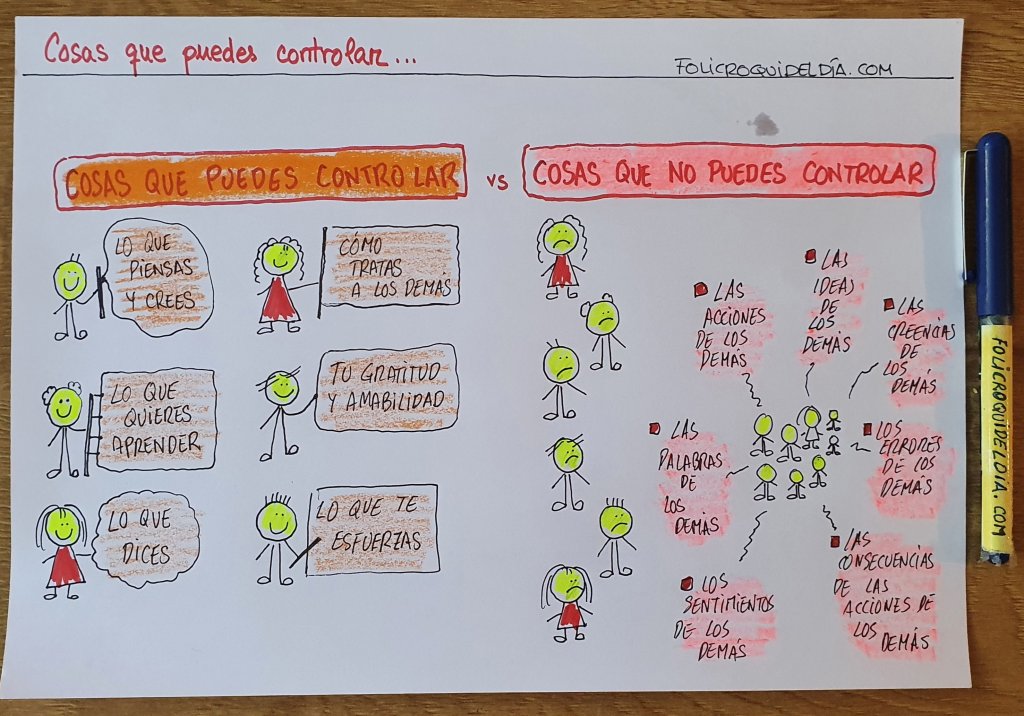 Cosas que puedes controlar...
FOLICROQUIDELDÍA.COM
COSAS QUE PUEDES CONTROLAR
vs
COSAS QUE NO PUEDES CONTROLAR
LO QUE
PIENSAS
Y CREES
CÓMO
TRATAS
A LOS DEMÁS
LO QUE
QUIERES
APRENDER
TU GRATITUD
Y AMABILIDAD
LO QUE
DICES
LO QUE TE
ESFUERZAS
LAS
ACCIONES
DE LOS
DEMÁS
LAS
IDEAS
DE
LOS
DEMÁS
LAS
CREENCIAS
DE
LOS
DEMÁS
LAS
PALABRAS
DE
LOS
DEMÁS
LOS
ERRORES
DE LOS
DEMÁS
LOS
SENTIMIENTOS
DE LOS
DEMÁS
LAS
CONSECUENCIAS
DE LAS
ACCIONES DE
LOS
DEMÁS
FOLICROQUIDELDÍA.COM